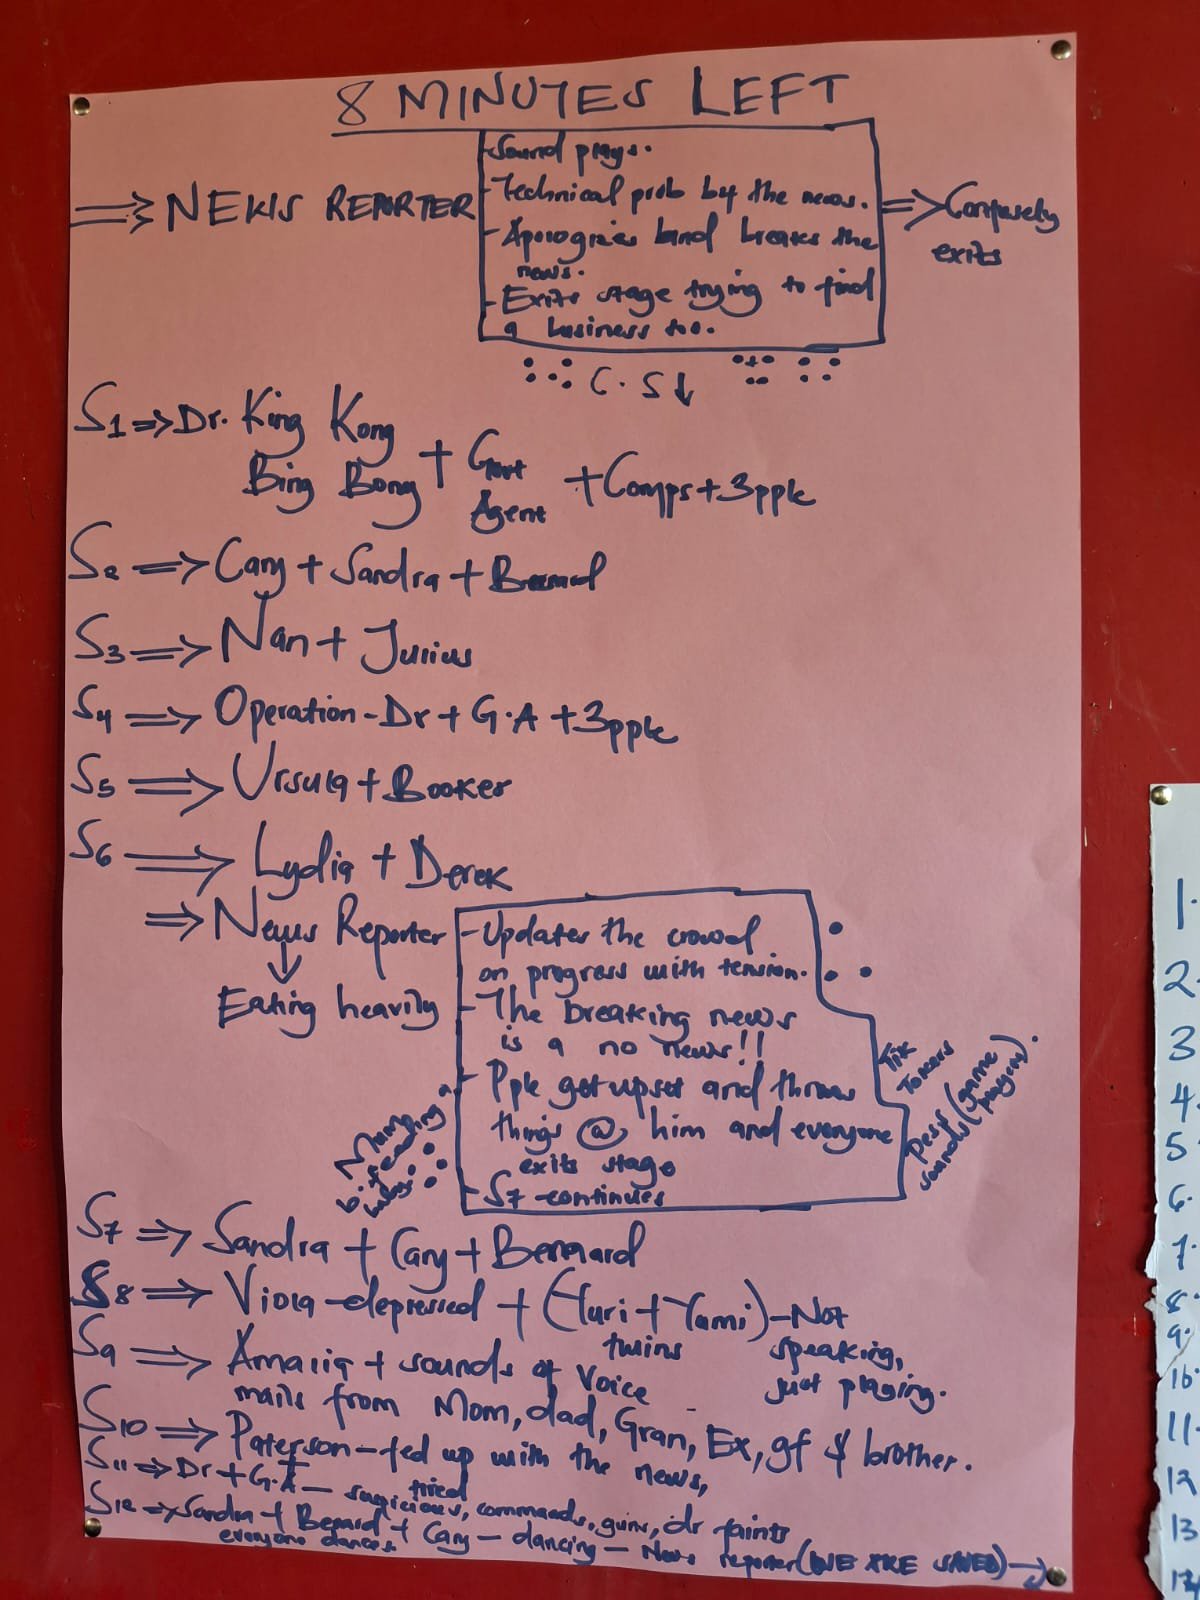 8 MINUTES LEFT
⇒ NEWS REPORTER
- Sound plays.
- Technical prob by the news.
- Apologizes and breaks the
news.
- Exits stage trying to find
a business too.
⇒ Confusely
exits
C.S ↓
S1 ⇒ Dr. King Kong
Bing Bong + Govt
Agent + Comps + 3pple
S2 ⇒ Cary + Sandra + Bernard
S3 ⇒ Nan + Julius
S4 ⇒ Operation - Dr + G.A + 3pple
S5 ⇒ Ursula + Booker
S6 ⇒ Lydia + Derek
⇒ News Reporter
↓
Eating heavily
- Updates the crowd
on progress with tension.
- The breaking news
is a no news!!
- Pple get upset and throws
things @ him and everyone
exits stage
- S7 continues
Tik
Tokers
sounds (game
players).
Mum
S7 ⇒ Sandra + Cary + Bernard
S8 ⇒ Viola - depressed + (Turi + Yami) - Not
twins speaking,
just playing.
S9 ⇒ Amalia + sounds of voice
mails from Mom, dad, Gran, Ex, gf & brother.
S10 ⇒ Paterson - fed up with the news,
tired
S11 ⇒ Dr + G.A - suspicious, commands, guns, dr faints
S12 ⇒ Sandra + Benard + Cary - dancing - News reporter (WE ARE SAVED) →
everyone dances
1.
2.
3
4.
5
6.
7.
8.
9.
10.
11.
12
13
14